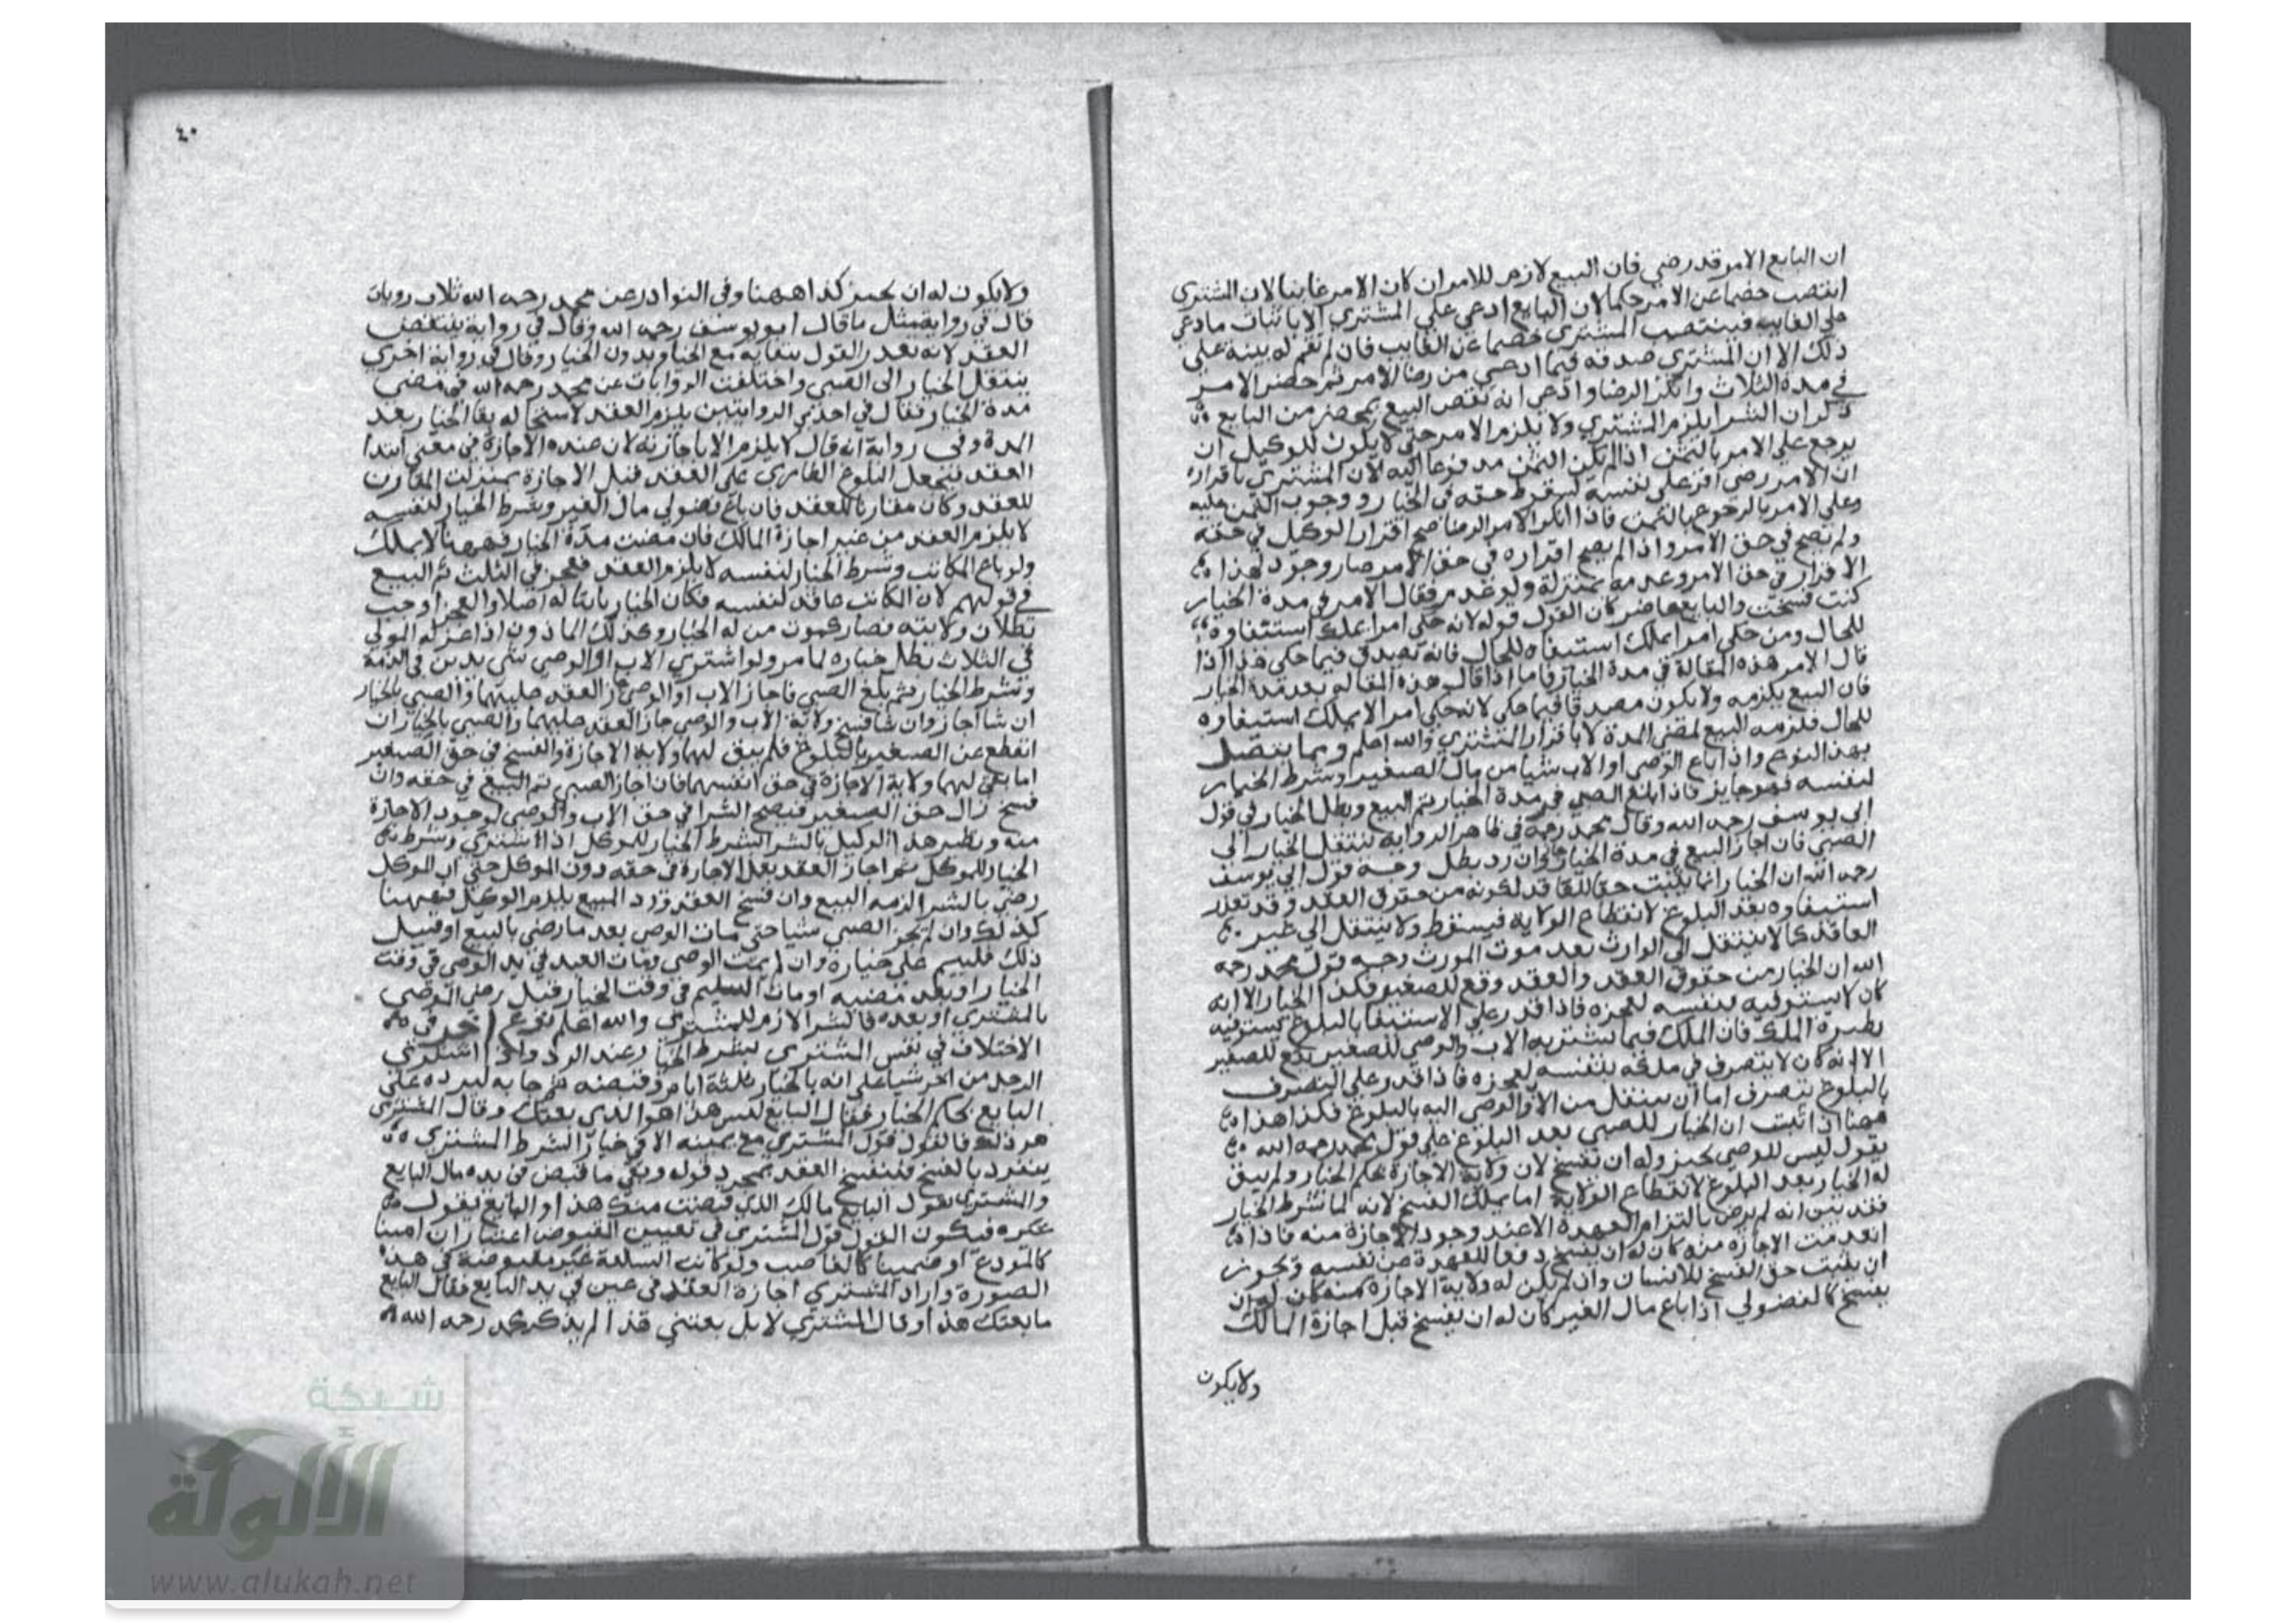 ان البايع الامر قد رضي فان البيع لازم للامر ان كان الامر غايبا لان المشتري
انتصب خصما عن الامر حكما لان البايع ادعى على المشتري الا باثبات ما ادعى
على الغايب فينتصب المشتري خصما عن الغايب فان لم تقم له بينة على
ذلك الا ان المشتري صدقه فيما ادعى من رضا الامر ثم حضر الامر
في مدة الثلاث وانكر الرضا وادعى انه نقض البيع بمحضر من البايع
ذكر ان الشرا يلزم المشتري ولا يلزم الامر حتى لا يكون للوكيل ان
يرجع على الامر بالثمن اذا لم يكن الثمن مدفوعا اليه لان المشتري باقراره
ان الامر رضى اقر على نفسه لسقوط حقه في الخيار ووجوب الثمن عليه
وعلى الامر بالرجوع بالثمن فاذا انكر الامر الرضا صح اقرار الوكيل في حقه
ولم تصح في حق الامر واذا لم يصح اقراره في حق الامر صار وجود هذا
الاقرار في حق الامر وعدمه بمنزلة ولو عدم فقال الامر في مدة الخيار
كنت فسخت والبايع حاضر كان القول قوله لانه حكى امرا يملك استيفاوه
للحال ومن حكى امرا يملك استيفاه للحال فانه يصدق فيما حكى هذا اذا
قال الامر هذه المقالة في مدة الخيار فاما اذا قال هذه المقالة بعد مدة الخيار
فان البيع يلزمه ولا يكون مصدقا فيما حكى لانه حكى امرا لا يملك استيفاوه
للحال فلزمه البيع لمضي المدة لا باقرار المشتري والله اعلم ومما يتصل
بهذا النوع واذا باع الوصي او الاب شيا من مال الصغير وشرط الخيار
لنفسه فهو جايز فاذا بلغ الصبي في مدة الخيار يتم البيع وبطل الخيار في قول
ابي يوسف رحمه الله وقال محمد رحمه في ظاهر الرواية ينتقل الخيار الى
الصبي فان اجاز البيع في مدة الخيار جاز وان رد بطل وجه قول ابي يوسف
رحمه الله ان الخيار انما يثبت حقا للعاقد لكونه من حقوق العقد وقد تعذر
استيفاوه بعد البلوغ لانقطاع الولاية فيسقط ولا ينتقل الى غير
العاقد كما لا ينتقل الى الوارث بعد موت المورث وجه قول محمد رحمه
الله ان الخيار من حقوق العقد والعقد وقع للصغير فكذا الخيار الا انه
كان لا يستوفيه بنفسه لعجزه فاذا قدر على الاستيفا بالبلوغ يستوفيه
نظيره الملك فان الملك فيما يشتريه الاب والوصي للصغير يقع للصغير
الا انه كان لا يتصرف في ملكه بنفسه لعجزه فاذا قدر على التصرف
بالبلوغ يتصرف اما ان ينتقل من الاب والوصي اليه بالبلوغ فكذا هذا
ههنا اذا ثبت ان الخيار للصبي بعد البلوغ على قول محمد رحمه الله
يقول ليس للوصي يجيز وله ان يفسخ لان ولاية الاجازة بحكم الخيار ولم يبق
له الخيار بعد البلوغ لانقطاع الولاية اما يملك الفسخ لانه لما شرط الخيار
فقد بين انه لم يرض بالتزام العهدة الا عند وجود الاجازة منه فاذا
انعدمت الاجازة منه كان له ان يفسخ دفعا للعهدة عن نفسه ويجوز
ان يثبت حق الفسخ للانسان وان لم يكن له ولاية الاجازة منه كان له ان
يفسخ كالفضولي اذا باع مال الغير كان له ان يفسخ قبل اجازة المالك
ولا يكون
٤٠
ولا يكون له ان يجيز كذا ههنا وفي النوادر عن محمد رحمه الله ثلاث روايات
قال في رواية مثل ما قال ابو يوسف رحمه الله وقال في رواية ينتقض
العقد لانه تعذر القول ببقايه مع الخيار وبدون الخيار وقال في رواية اخرى
ينتقل الخيار الى الصبي واختلفت الروايات عن محمد رحمه الله في مضي
مدة الخيار فقال في احدى الروايتين يلزم العقد لاستحالة بقا الخيار بعد
المدة وفي رواية انه قال لا يلزم الا باجازته لان عنده الاجازة في معنى ابتدا
العقد فيجعل البلوغ الطارى على العقد قبل الاجازة بمنزلة المقارن
للعقد وكان مقارنا للعقد فان باع فضولي مال الغير وشرط الخيار لنفسه
لا يلزم العقد من غير اجازة المالك فان مضت مدة الخيار فههنا لا يملك
ولو باع المكاتب وشرط الخيار لنفسه لا يلزم العقد فعجز في الثلث تم البيع
في قولهم لان المكاتب عاقد لنفسه فكان الخيار ثابتا له اصلا والعجز اوجب
بطلان ولايته فصار كموت من له الخيار وكذلك الماذون اذا عزله المولى
في الثلاث بطل خياره لما مر ولو اشترى الاب او الوصي شي بدين في الذمة
وشرط الخيار ثم بلغ الصبي فاجاز الاب او الوصي جاز العقد عليهما والصبي بالخيار
ان شا اجاز وان شا فسخ ولاية الاب والوصي جاز العقد عليهما والصبي بالخيار ان
انقطع عن الصغير بالبلوغ فلم يبق لهما ولاية الاجازة والفسخ في حق الصغير
اما بقى لهما ولاية الاجازة في حق انفسهما فان اجاز الصبي تم البيع في حقه وان
فسخ زال حق الصغير فيصح الشرا في حق الاب والوصي لوجود الاجازة
منه ونظير هذا الوكيل بالشرا لشرط الخيار للموكل اذا اشترى وشرط
الخيار للموكل ثم اجاز العقد بعد الاجازة في حقه دون الموكل حتى ان الموكل
رضي بالشرا لزمه البيع وان فسخ العقد ورد المبيع يلزم الوكيل فههنا
كذلك وان لم يجز الصبي شيا حتى مات الوصي بعد ما رضي بالبيع او قبل
ذلك فليتيم على خياره وان لم يمت الوصي ومات العبد في يد الوصي في وقت
الخيار او بعد مضيه او مات اليتيم في وقت الخيار قبل رضي الوصي
بالمشترى او بعده فالشرا لازم للمشتري والله اعلم نوع اخر في
الاختلاف في نفس المشترى بشرط الخيار عند الرد واذا اشترى
الرجل من اخر شيا على انه بالخيار ثلثة ايام وقبضه ثم جا به ليرده على
البايع بحكم الخيار فقال البايع ليس هذا هو الذي بعتك وقال المشترى
هو ذلك فالقول قول المشترى مع يمينه لان في خيار الشرط المشترى
ينفرد بالفسخ فينفسخ العقد بمجرد قوله وبقي ما قبض في يده مال البايع
والمشتري يقول البايع مالك الذي قبضت منك هذا او البايع يقول
غيره فيكون القول قول المشترى في تعيين المقبوض اعتبارا ان امينا
كالمودع او ضمينا كالغاصب ولو كانت السلعة غير مقبوضة في هذه
الصورة واراد المشترى اجازة العقد في عين في يد البايع فقال البايع
ما بعتك هذا وقال المشترى لا بل بعتني هذا لم يذكر محمد رحمه الله
شبكة
الألوكة
www.alukah.net